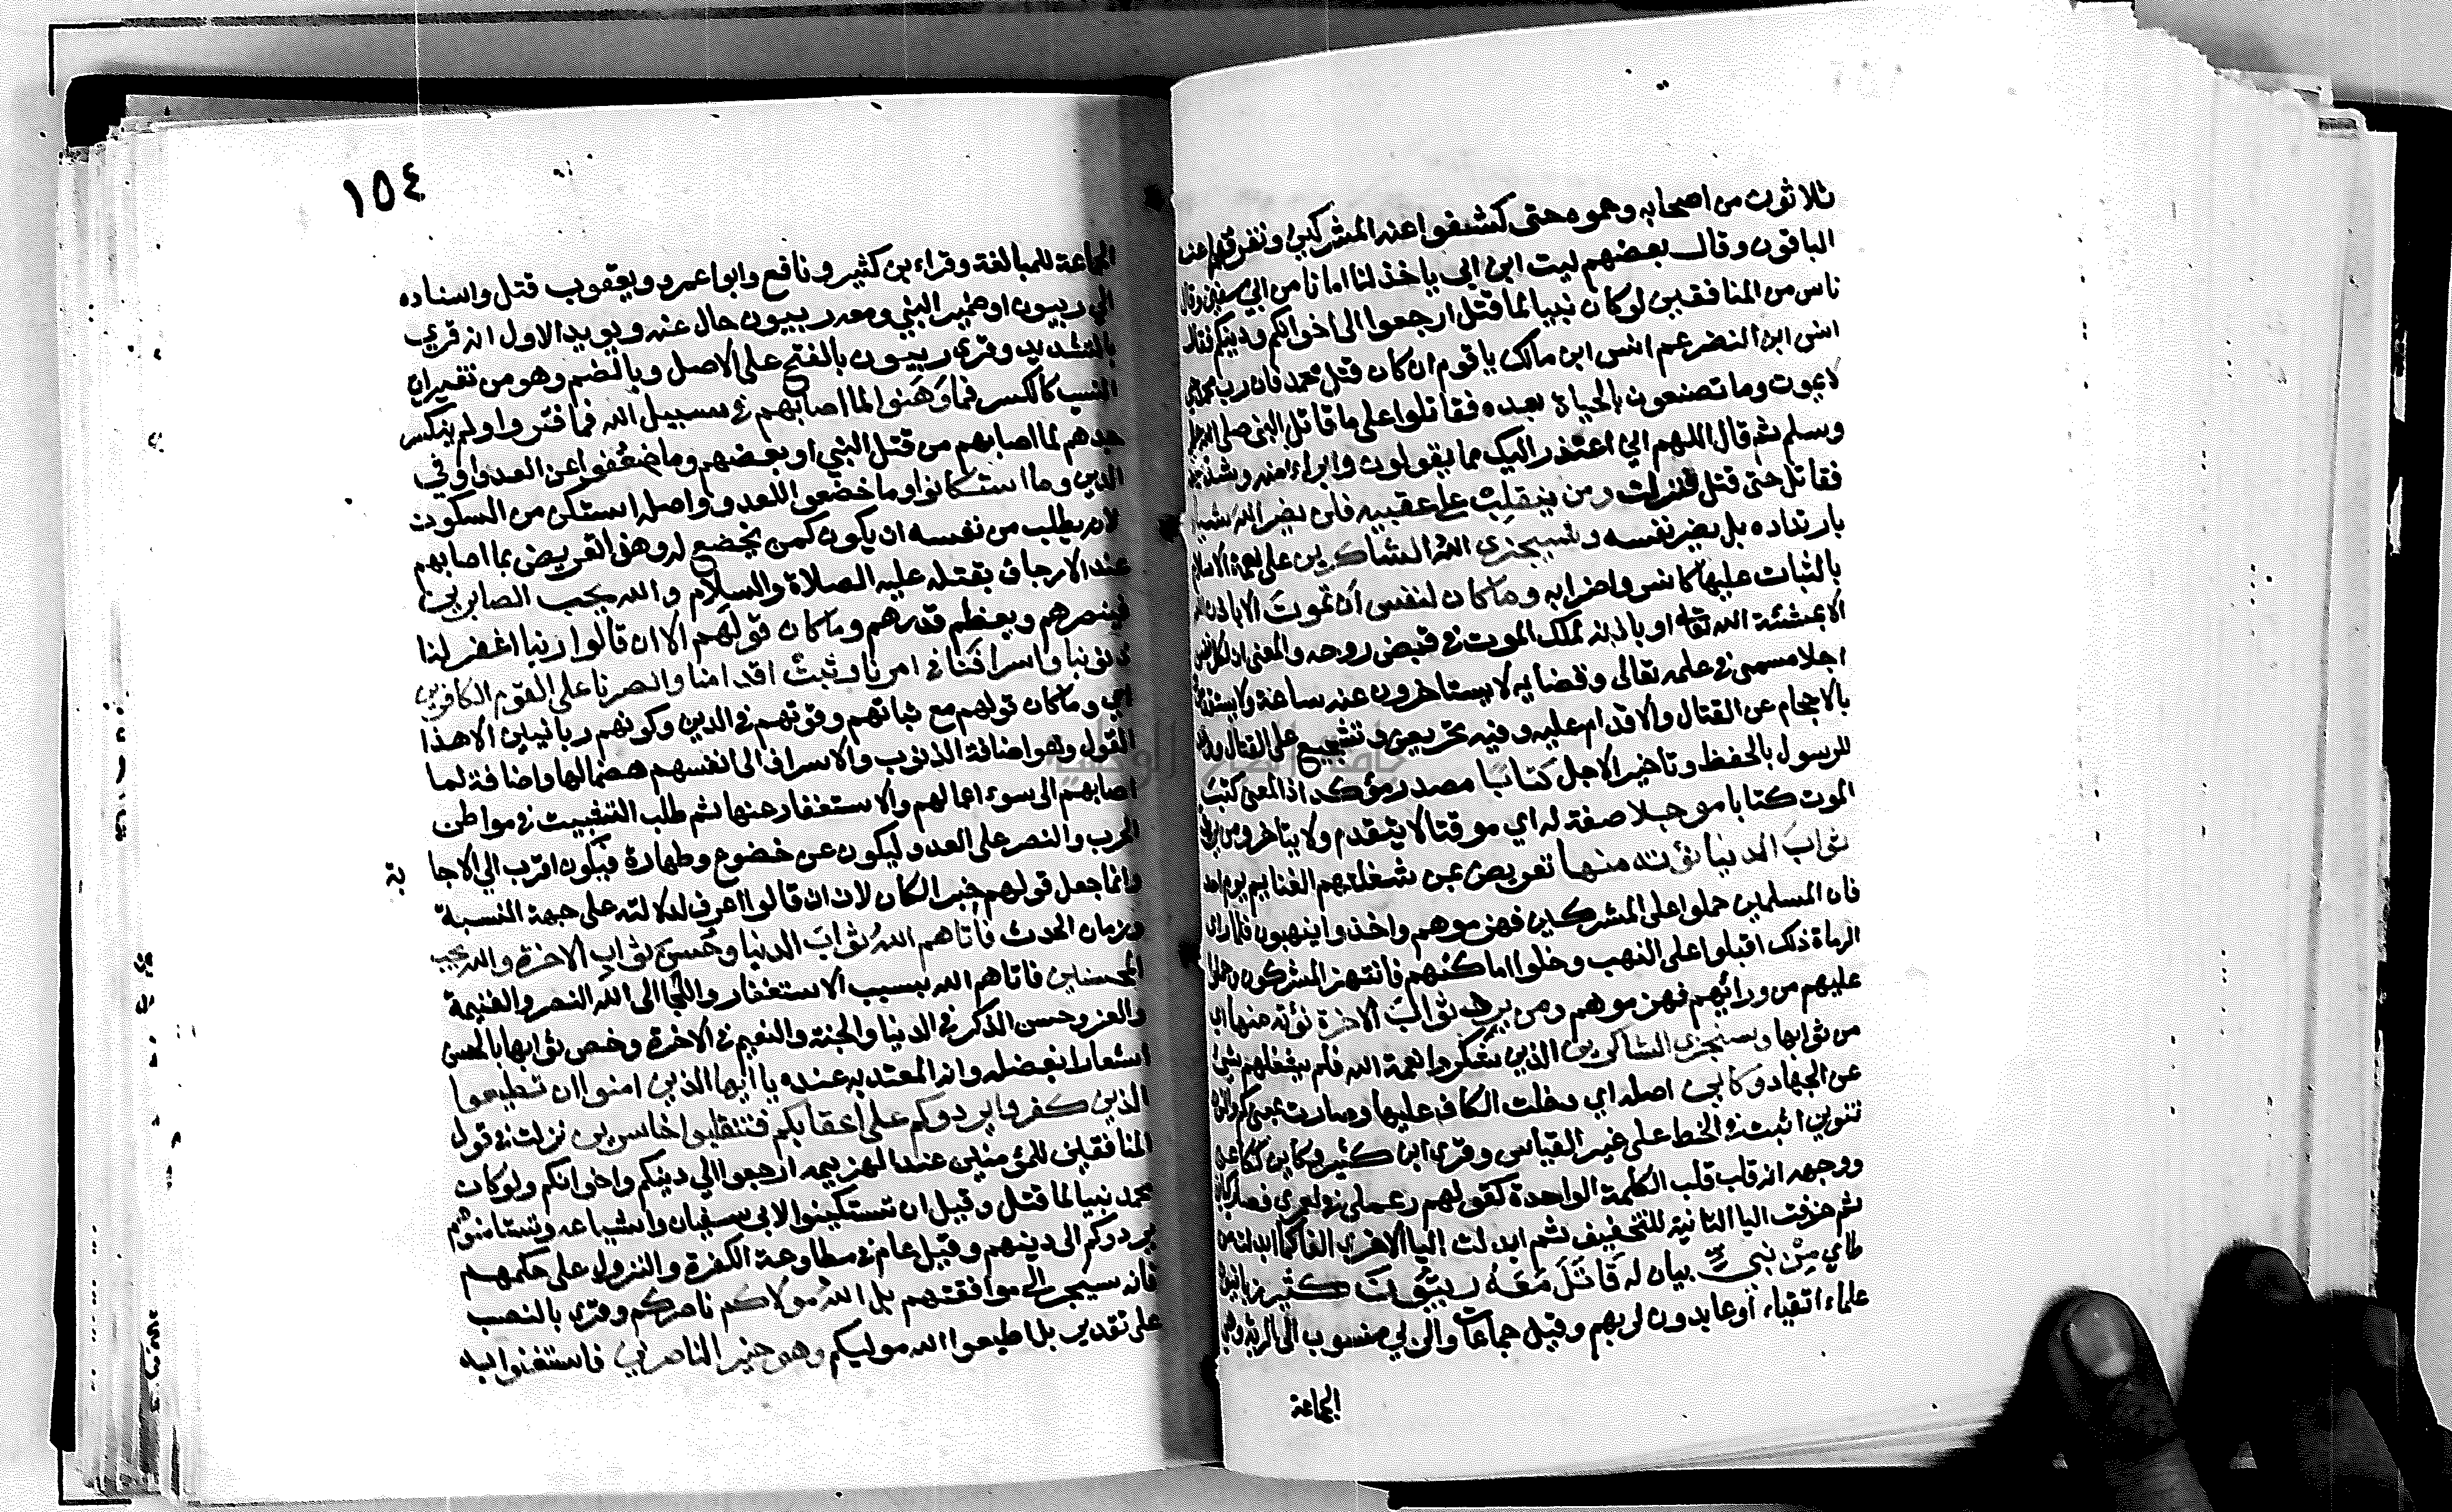 ثلاثون من اصحابه وحموه حتى كشفوا عنه المشركين وتفرق
الباقون وقال بعضهم ليت ابن ابي ياخذ لنا امانا من ابي سفين وقال
ناس من المنافقين لو كان نبيا لما قتل ارجعوا الى اخوانكم ودينكم فقال
انس ابن النضر عم انس ابن مالك يا قوم ان كان قتل محمد فان رب محمد حي
لا يموت وما تصنعون بالحياة بعده فقاتلوا على ما قاتل النبي صلى الله عليه
وسلم ثم قال اللهم اني اعتذر اليك مما يقولون وابراء منه وشد بسيفه
فقاتل حتى قتل فنزلت ومن ينقلب على عقبيه فلن يضر الله شيئا
بارتداده بل يضر نفسه وسيجزي الله الشاكرين على نعمة الاسلام
بالثبات عليها كانس واضرابه وما كان لنفس ان تموت الا باذن الله
الا بمشئة الله تعالى او باذنه لملك الموت في قبض روحه والمعنى ان لكل نفس
اجلا مسمى في علمه تعالى وقضايه لا يستاخرون عنه ساعة ولا يستقدمون
بالاحجام عن القتال والاقدام عليه وفيه تحريض وتشجيع على القتال ووعد
للرسول بالحفظ وتاخير الاجل كتابا مصدر مؤكد اذ المعنى كتب
الموت كتابا مؤجلا صفة له اي موقتا لا يتقدم ولا يتاخر ومن يرد
ثواب الدنيا نؤته منها تعريض عن شغلتهم الغنايم يوم احد
فان المسلمين حملوا على المشركين فهزموهم واخذوا ينهبون فلما راى
الرماة ذلك اقبلوا على النهب وخلوا اماكنهم فانتهز المشركون وحملوا
عليهم من ورائهم فهزموهم ومن يرد ثواب الاخرة نؤته منها اي
من ثوابها وسنجزي الشاكرين الذين شكروا نعمة الله فلم يشغلهم شئ
عن الجهاد وكاين اصله اي دخلت الكاف عليها وصارت بمعنى كم والنون
تنوين اثبت في الخط على غير القياس وقرئ ابن كثير وكاين ككاعن
ووجهه انه قلب قلب الكلمة الواحدة كقولهم رعملي في لعمري فصار كيان
ثم حذفت اليا الثانية للتخفيف ثم ابدلت اليا الاخرى الفا كما ابدلت من
طائ من نبي بيان له قاتل معه ربيون كثير ربانيون
علماء اتقياء او عابدون لربهم وقيل جماعات والربي منسوب الى الربة وهي
الجماعة
١٥٤
الجماعة للمبالغة وقراء بن كثير ونافع وابوا عمرو ويعقوب قتل واسناده
الي ربيون او ضمير النبي ومعه ربيون حال عنه ويويد الاول انه قرئ
بالتشديد وقرئ ربيون بالفتح على الاصل وبالضم وهو من تغيرات
النسب كالكسر فما وهنوا لما اصابهم في سبيل الله فما فتروا ولم ينكسر
جدهم لما اصابهم من قتل النبي او بعضهم وما ضعفوا عن العدى او في
الدين وما استكانوا وما خضعوا للعدو واصل استكن من السكون
لانه يطلب من نفسه ان يكون كمن يخضع له وهذا تعريض بما اصابهم
عند الارجاف بقتله عليه الصلاة والسلام والله يحب الصابرين
فينصرهم ويعظم قدرهم وما كان قولهم الا ان قالوا ربنا اغفر لنا
ذنوبنا واسرافنا في امرنا وثبت اقدامنا وانصرنا على القوم الكافرين
اي وما كان قولهم مع ثباتهم وقوتهم في الدين وكونهم ربانيين الا هذا
القول وهو اضافة الذنوب والاسراف الى انفسهم هضما لها واضافة لما
اصابهم الى سوء اعمالهم والاستغفار عنها ثم طلب التثبيت في مواطن
الحرب والنصر على العدو ليكون عن خضوع وطهارة فيكون اقرب الي الاجا
بة
وانما جعل قولهم خبر الكان لان ان قالوا اعرف لدلالته على جهة النسبة
وزمان الحدث فاتاهم الله ثواب الدنيا وحسن ثواب الاخرة والله يحب
المحسنين فاتاهم الله بسبب الاستغفار واللجا الى الله النصر والغنيمة
والعز وحسن الذكر في الدنيا والجنة والنعيم في الاخرة وخص ثوابها بالحسن
اشعارا بفضله وانه المعتد به عنده يا ايها الذين امنوا ان تطيعوا
الذين كفروا يردوكم على اعقابكم فتنقلبوا خاسرين نزلت في قول
المنافقين للمؤمنين عند الهزيمه ارجعوا الي دينكم واخوانكم ولو كان
محمد نبيا لما قتل وقيل ان تستكينوا لابي سفيان واشياعه وتستامنوهم
يردوكم الى دينهم وقيل عام في مطاوعة الكفرة والنزول على حكمهم
فانه سيجر الى موافقتهم بل الله مولاكم ناصركم وقرئ بالنصب
على تقدير بل اطيعوا الله موليكم وهو خير الناصرين فاستغنوا به